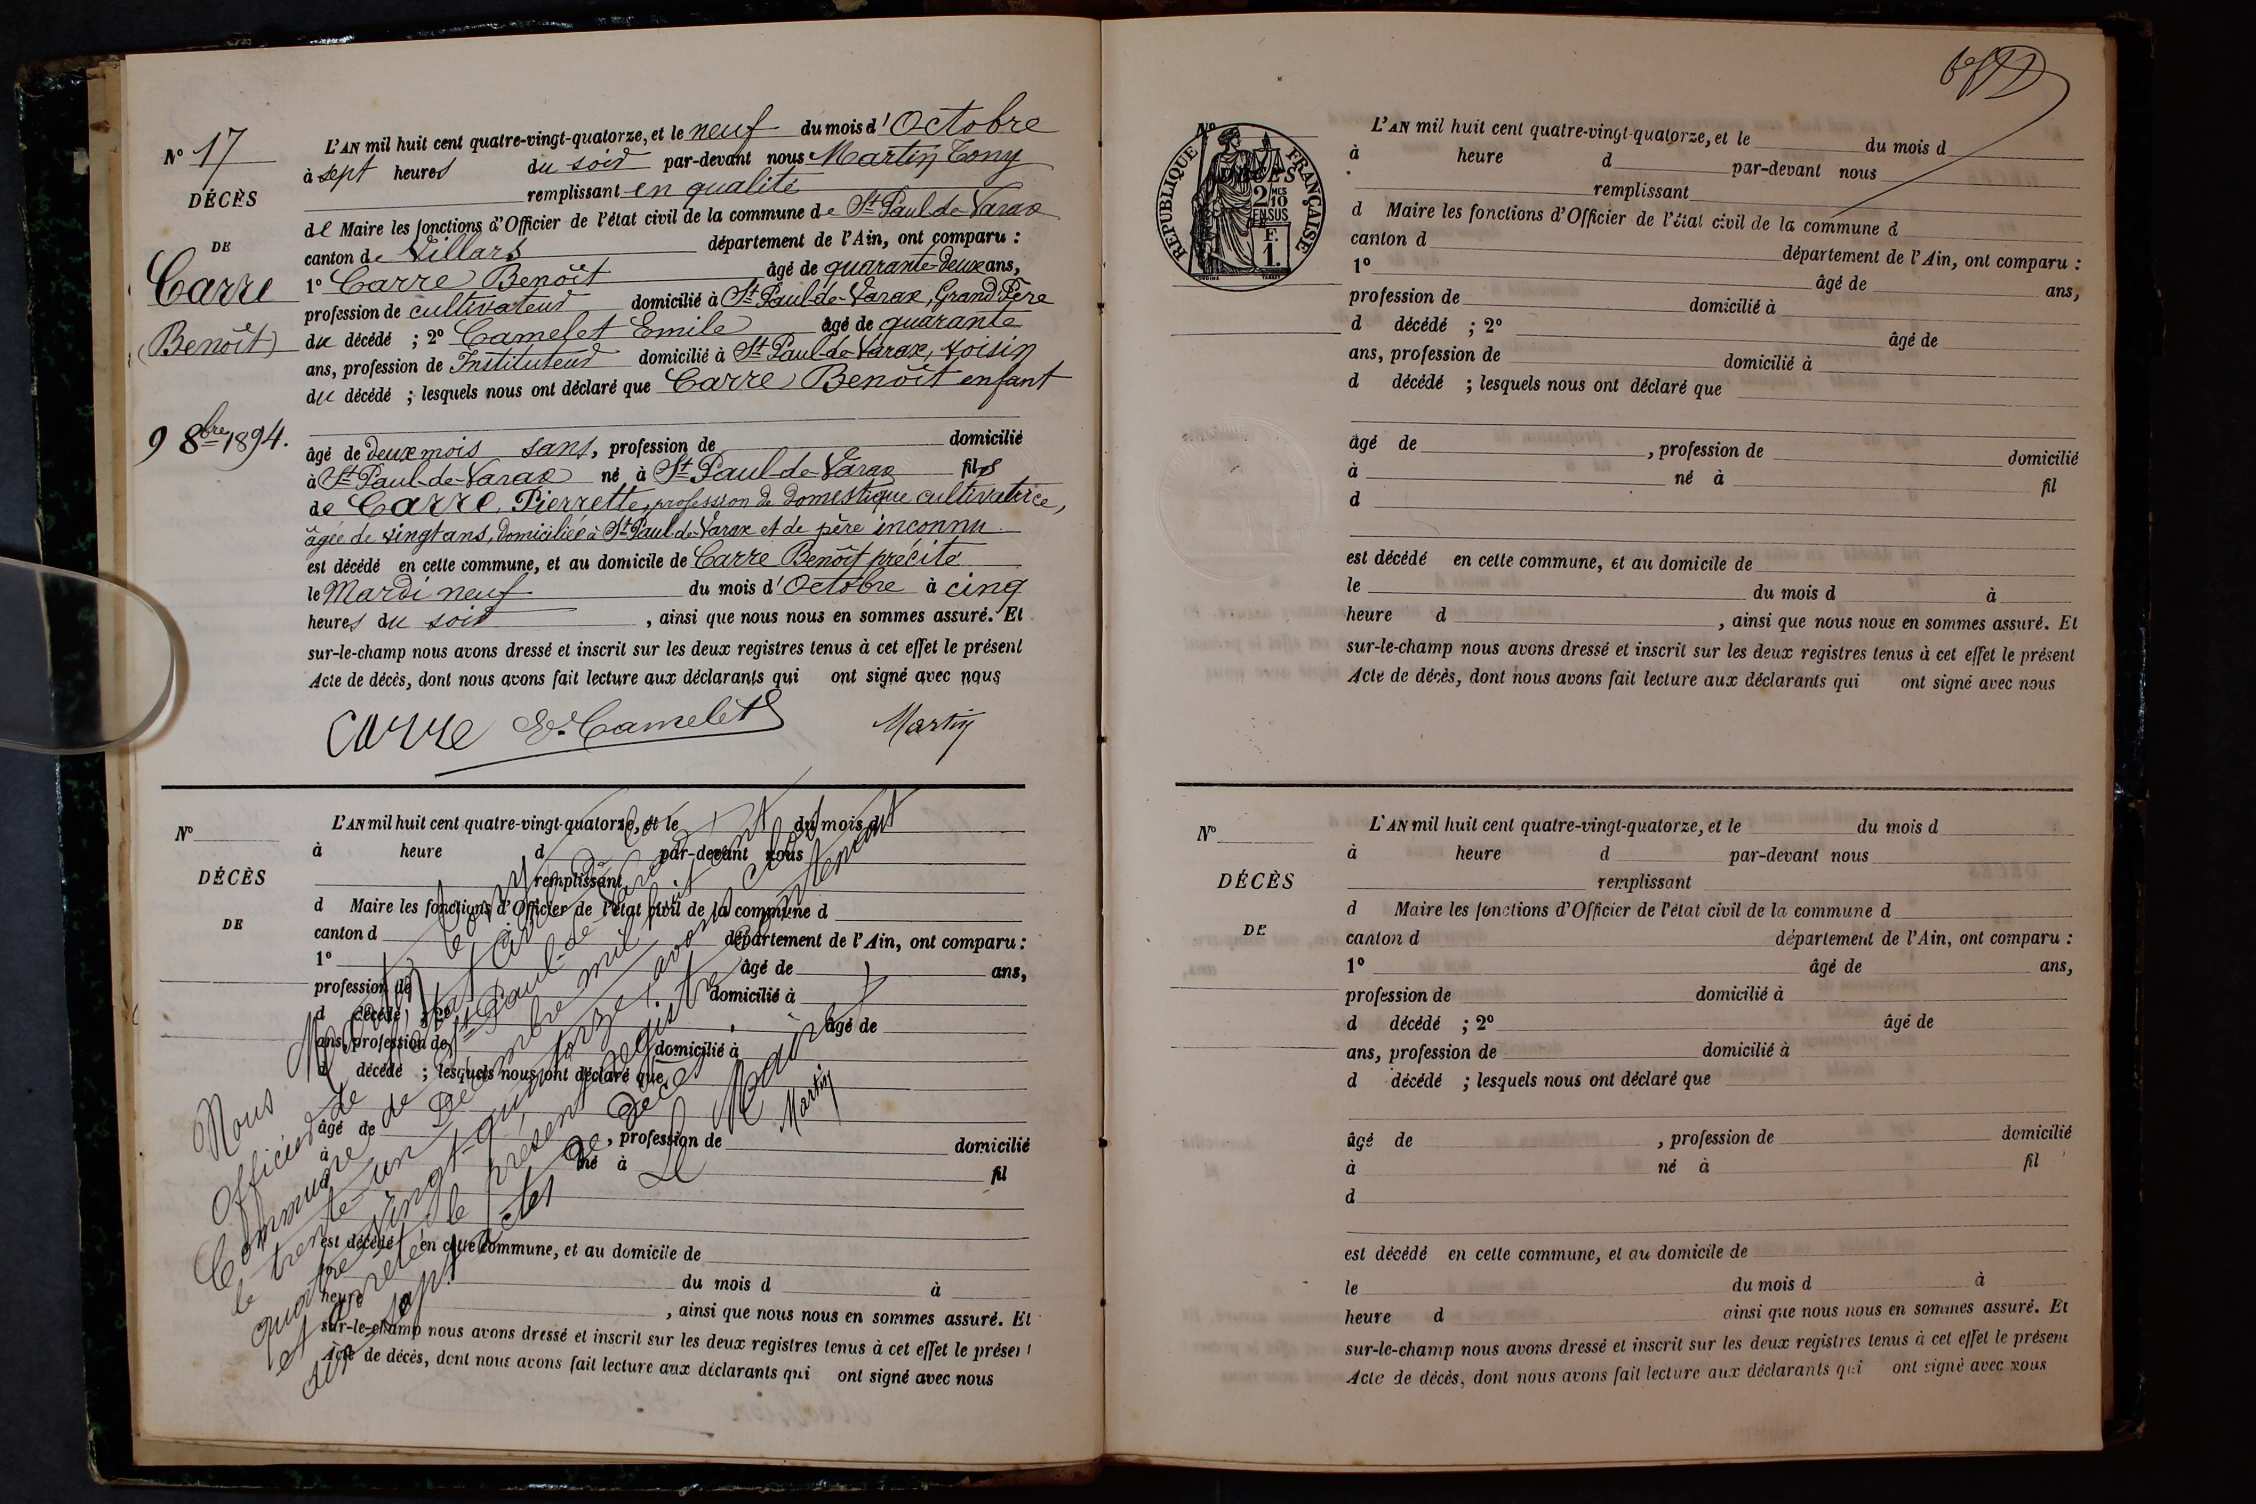 N° 17
DÉCÈS
DE
Carre
(Benoît)
9 8bre 1894.
L'AN mil huit cent quatre-vingt-quatorze, et le neuf du mois d'Octobre
à sept heures du soir par-devant nous Martin Tony
remplissant en qualité
de Maire les fonctions d'Officier de l'état civil de la commune de St Paul-de-Varax
canton de Villars département de l'Ain, ont comparu :
1° Carre Benoît âgé de quarante-deux ans,
profession de cultivateur domicilié à St Paul-de-Varax, Grand Père
du décédé ; 2° Camelet Emile âgé de quarante
ans, profession de Instituteur domicilié à St Paul-de-Varax, voisin
du décédé ; lesquels nous ont déclaré que Carre Benoît enfant
âgé de deux mois sans, profession de domicilié
à St Paul-de-Varax né à St Paul-de-Varax fils
de Carre Pierrette, profession de domestique cultivatrice,
âgée de vingt ans, domiciliée à St Paul-de-Varax et de père inconnu
est décédé en cette commune, et au domicile de Carre Benoît précité
le Mardi neuf du mois d'Octobre à cinq
heures du soir, ainsi que nous nous en sommes assuré. Et
sur-le-champ nous avons dressé et inscrit sur les deux registres tenus à cet effet le présent
Acte de décès, dont nous avons fait lecture aux déclarants qui ont signé avec nous
Carre Ee. Camelet Martin
N°
DÉCÈS
DE
L'AN mil huit cent quatre-vingt-quatorze, et le du mois d
à heure d par-devant nous
remplissant
d Maire les fonctions d'Officier de l'état civil de la commune d
canton d département de l'Ain, ont comparu :
1° âgé de ans,
profession de domicilié à
d décédé ; 2° âgé de
ans, profession de domicilié à
d décédé ; lesquels nous ont déclaré que
âgé de , profession de domicilié
à né à fil
d
est décédé en cette commune, et au domicile de
le du mois d à
heure d , ainsi que nous nous en sommes assuré. Et
sur-le-champ nous avons dressé et inscrit sur les deux registres tenus à cet effet le présent
Acte de décès, dont nous avons fait lecture aux déclarants qui ont signé avec nous
Nous Martin Tony
Officier de l'état civil de la
Commune de St Paul-de-Varax
le trente-un Décembre mil huit cent
quatre vingt-quatorze, avons clos
et arrêté le présent registre contenant
dix-sept actes de décès.
Le Maire
Martin
N°
DÉCÈS
REPUBLIQUE FRANÇAISE
2 MES
10
EN SUS
F.
1.
L'AN mil huit cent quatre-vingt-quatorze, et le du mois d
à heure d par-devant nous
remplissant
d Maire les fonctions d'Officier de l'état civil de la commune d
canton d département de l'Ain, ont comparu :
1° âgé de ans,
profession de domicilié à
d décédé ; 2° âgé de
ans, profession de domicilié à
d décédé ; lesquels nous ont déclaré que
âgé de , profession de domicilié
à né à fil
d
est décédé en cette commune, et au domicile de
le du mois d à
heure d , ainsi que nous nous en sommes assuré. Et
sur-le-champ nous avons dressé et inscrit sur les deux registres tenus à cet effet le présent
Acte de décès, dont nous avons fait lecture aux déclarants qui ont signé avec nous
N°
DÉCÈS
DE
L'AN mil huit cent quatre-vingt-quatorze, et le du mois d
à heure d par-devant nous
remplissant
d Maire les fonctions d'Officier de l'état civil de la commune d
canton d département de l'Ain, ont comparu :
1° âgé de ans,
profession de domicilié à
d décédé ; 2° âgé de
ans, profession de domicilié à
d décédé ; lesquels nous ont déclaré que
âgé de , profession de domicilié
à né à fil
d
est décédé en cette commune, et au domicile de
le du mois d à
heure d ainsi que nous nous en sommes assuré. Et
sur-le-champ nous avons dressé et inscrit sur les deux registres tenus à cet effet le présent
Acte de décès, dont nous avons fait lecture aux déclarants qui ont signé avec nous